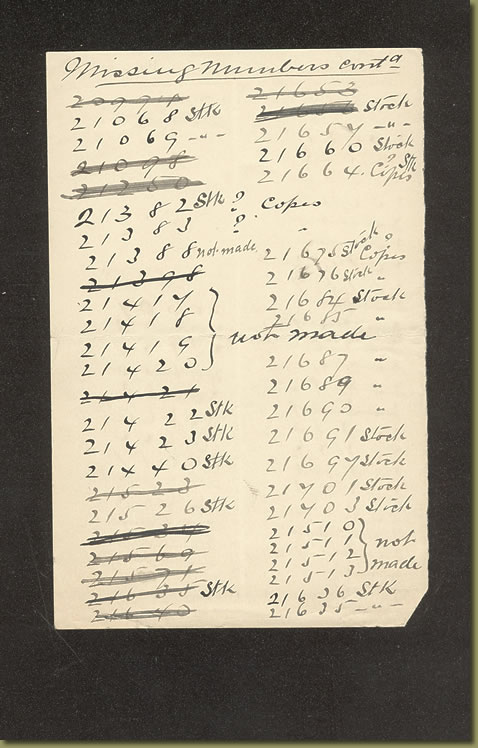 Missing Numbers contd
21068 Stk
21069 -"-
21098
21350
21382 Stk ? Copes
21383 ? "
21388 not made
21398
21417
21418
not made
21419
21420
21421
21422 Stk
21423 Stk
21440 Stk
21523
21526 Stk
21534
21569
21571
21635 Stk
21640
21653
Stock
21657 -"-
21660 Stock
21664. Copes ? Stk
21675 Stock ? Copes
21676 Stock "
21684 Stock
21685 "
21687 "
21689 "
21690 "
21691 Stock
21697 Stock
21701 Stock
21703 Stock
21510
21511
not made
21512
21513
21636 Stk
21635 -"-